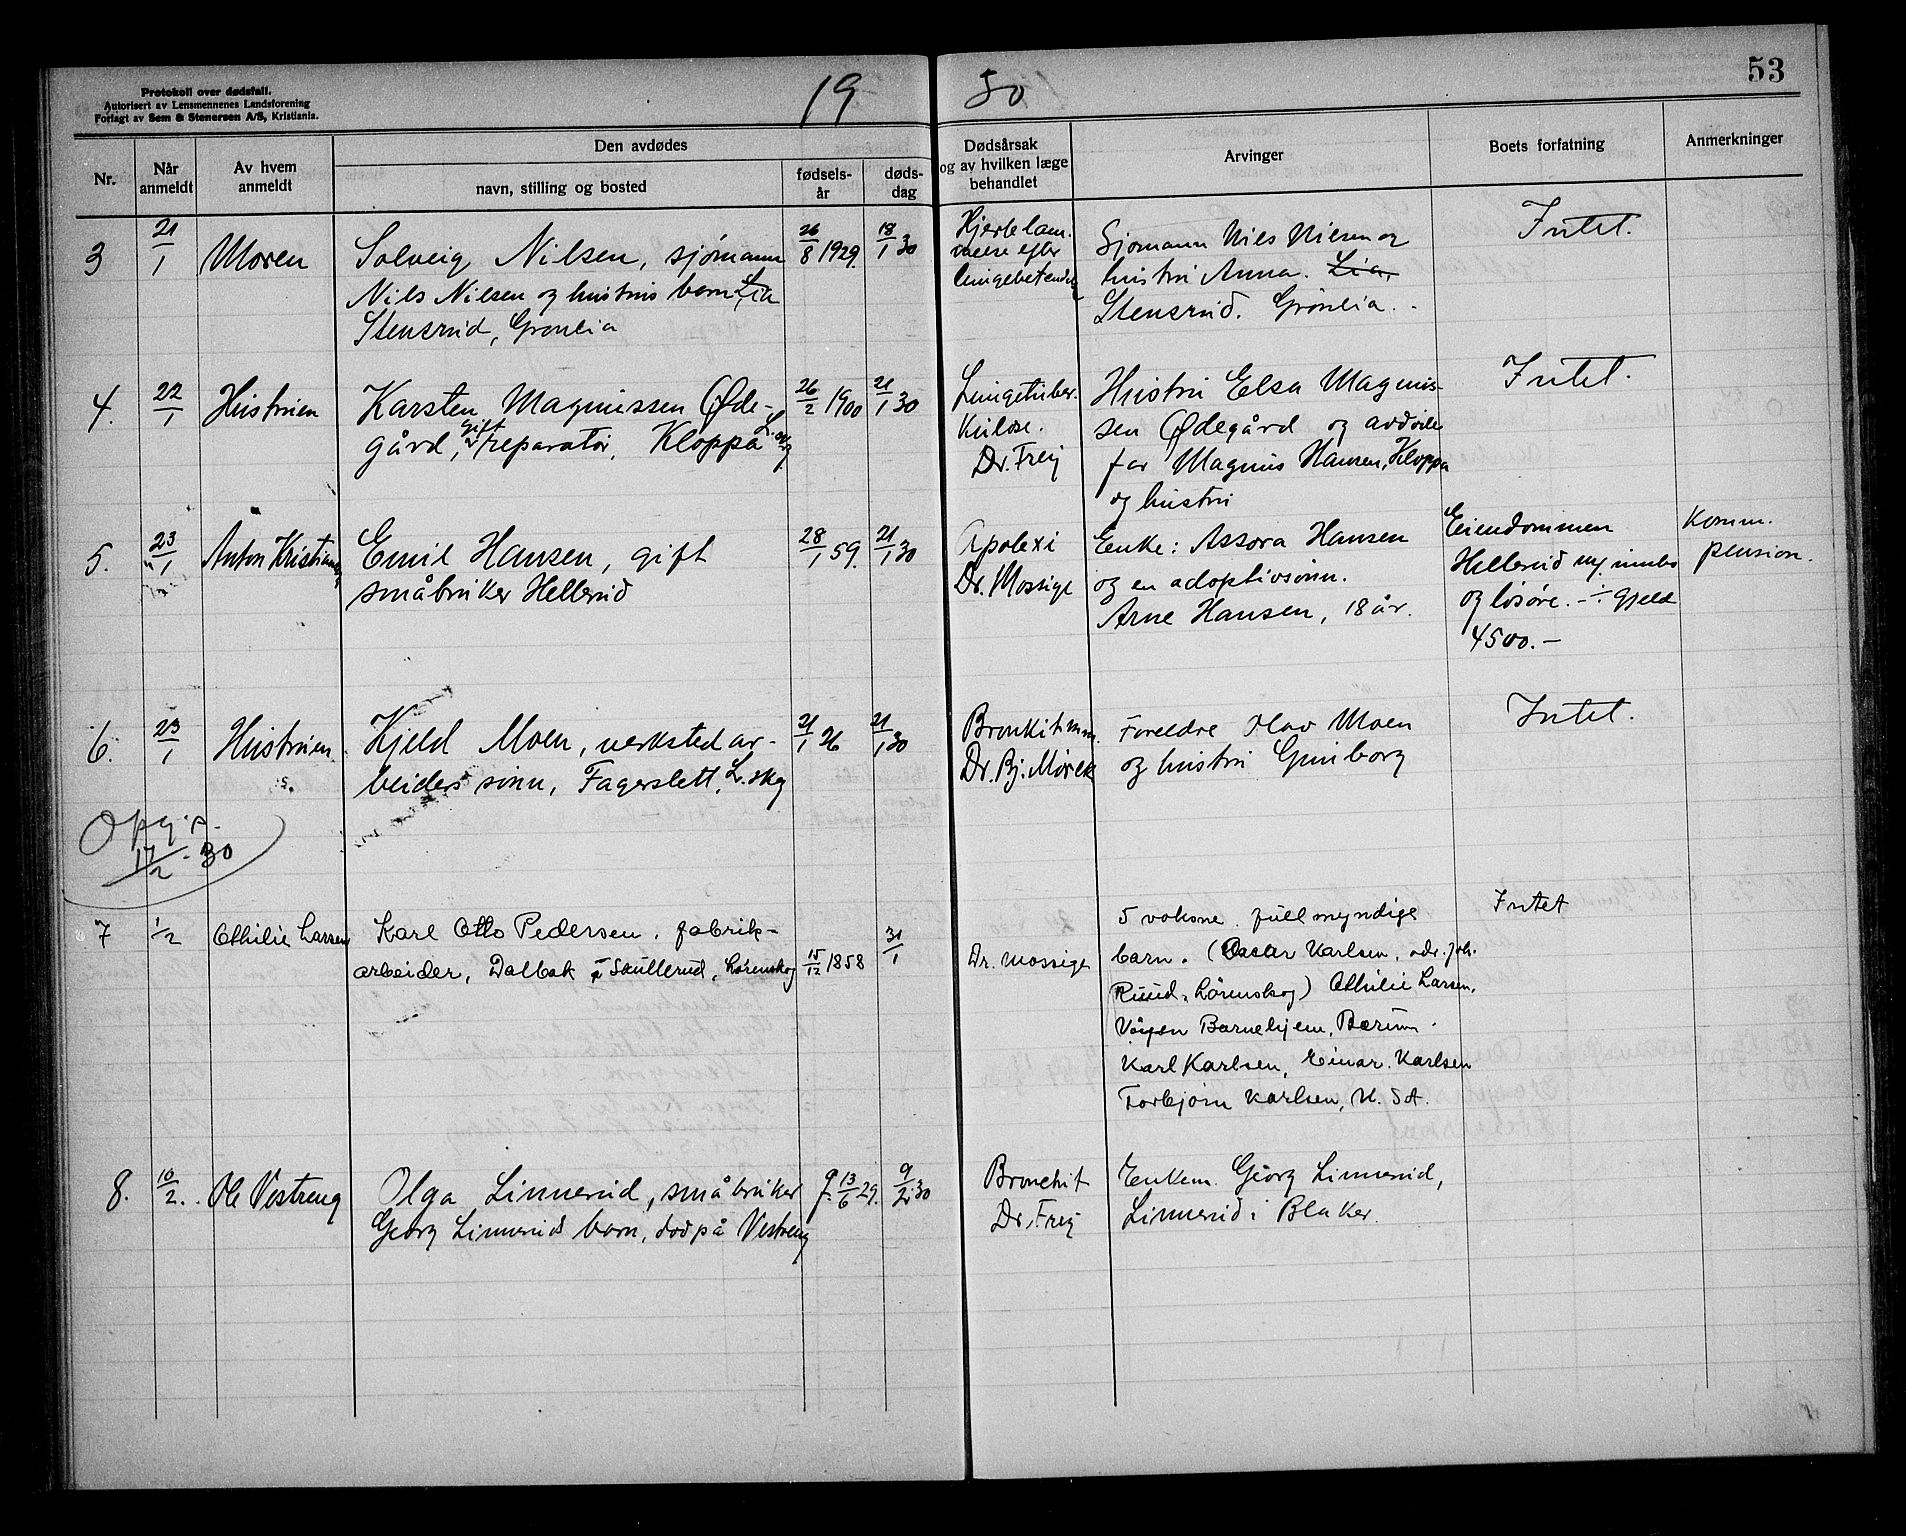 Protokoll over dødsfall.
Autorisert av Lensmennenes Landsforening
Forlagt av Sem & Stenersen A/S, Kristiania.
19 30
53
Nr.
Når anmeldt
Av hvem anmeldt
Den avdødes
navn, stilling og bosted
fødsels-år
døds-dag
Dødsårsak
og av hvilken læge
behandlet
Arvinger
Boets forfatning
Anmerkninger
3 21/1 Moren
Solveig Nilsen, sjømann
Nils Nilsen og hustrus barn, Lia
Stensrud, Grønlia
26/8 1929. 18/1 30
Hjertelam.
efter
lungebetendelse
Sjømann Nils Nilsen og
hustru Anna. Lia,
Stensrud. Grønlia.
Intet.
4. 22/1 Hustruen
Karsten Magnussen Øde-
gård, gift reparatør, Kloppa L.skog
26/2 1900 21/1 30
Lungetuber-
kulose.
Dr. Frey
Hustru Elsa Magnus-
sen Ødegård og avdøde
far Magnus Hansen, Kloppa
og hustru
Intet.
5. 23/1 Anton Kristiansen
Emil Hansen, gift
småbruker Hellerud
28/1 59. 21/1 30
Apolexi
Dr. Mossige
Enke: Assora Hansen
og en adoptivsønn.
Arne Hansen, 18 år.
Eiendommen
Hellerud m/ innbo
og løsøre. - ÷ gjeld
4500.-
Komm.
pension.
6. 23/1 Hustruen
Kjeld Moen, verksted ar-
beiders sønn, Fagerslett, L.skog
21/1 26 21/1 30
Bronkit
Dr. Bj. Mørck
Foreldre Olav Moen
og hustru Gunborg
Intet.
Opg. s.
17/2 - 30
7 1/2 Othilie Larsen
Karl Otto Pedersen, fabrik-
arbeider, Dalbak i Skullerud, Lørenskog
15/12 1858 31/1
Dr. Mossige
5 voksne fullmyndige
barn. (Oscar Karlsen, adr. Joh.
Ruud, Lørenskog) Othilie Larsen,
Vøyen Barnehjem, Bærum.
Karl Karlsen, Einar Karlsen
Torbjørn Karlsen, U.S.A.
Intet
8. 10/2. Ole Vestreng
Olga Linnerud, småbruker
Georg Linneruds barn, død på Vestreng
f. 13/6 29. 9/2 30
Bronchit
Dr. Frey
Enkem. Georg Linnerud,
Linnerud i Blaker.